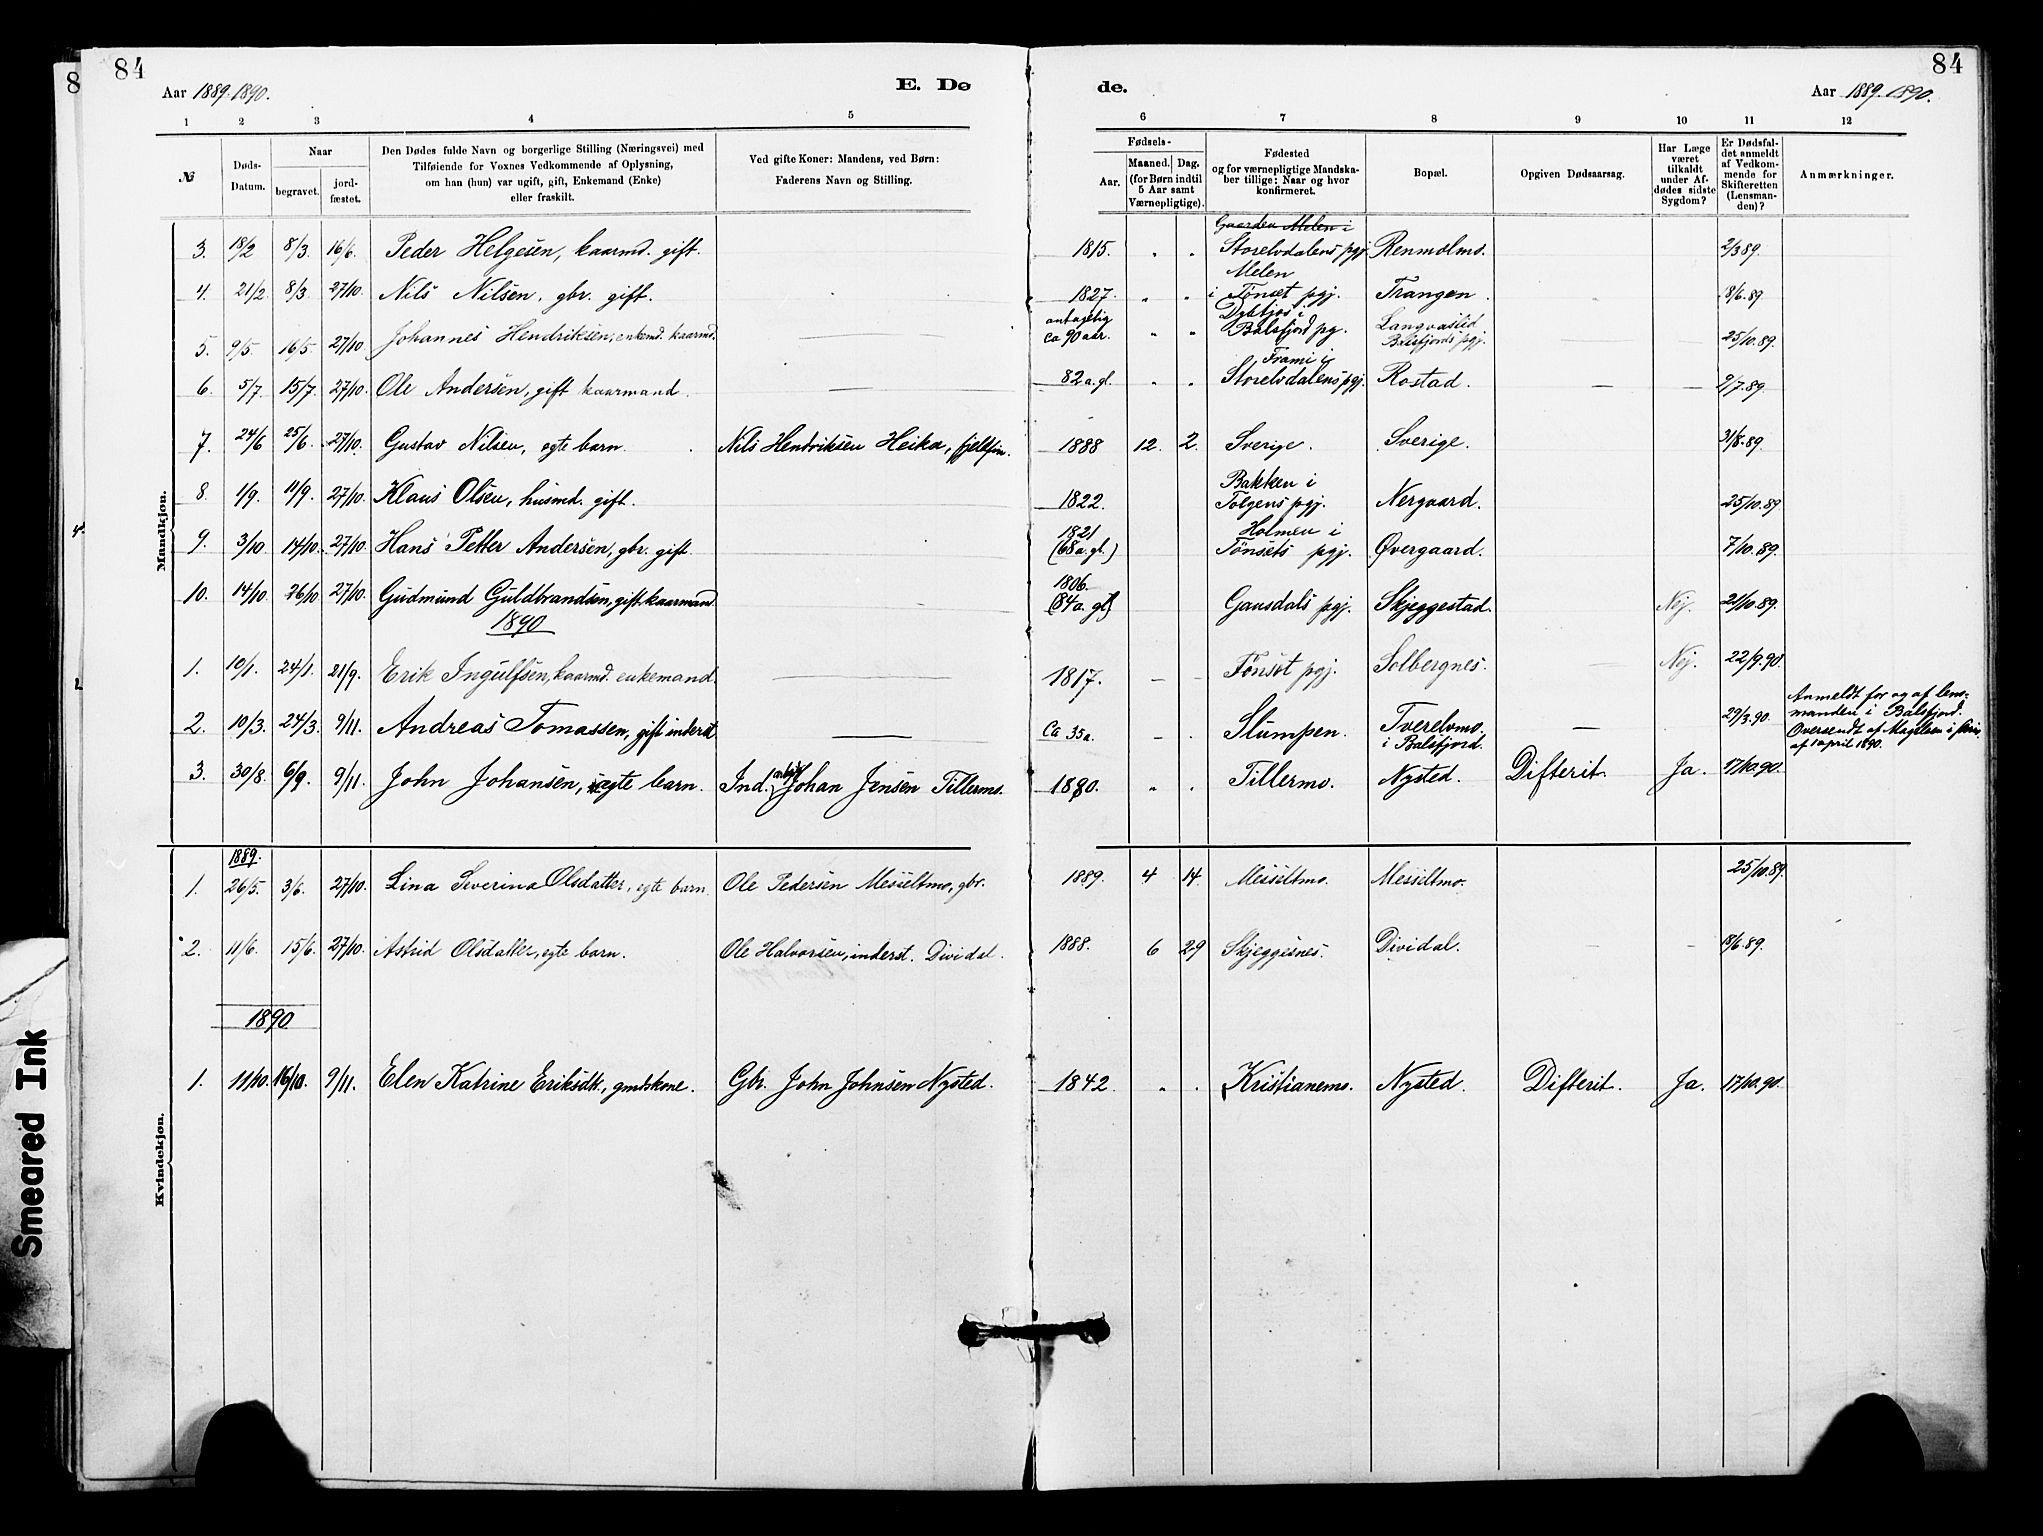 84
84
Aar 1889. 1890.
E. Dø
de.
Aar 1889. 1890.
1 2 3 4 5 6 7 8 9 10 11 12
№
Døds-Datum.
Naar
begravet.
jord-fæstet.
Den Dødes fulde Navn og borgerlige Stilling (Næringsvei) med
Tilføiende for Voxnes Vedkommende af Oplysning,
om han (hun) var ugift, gift, Enkemand (Enke)
eller fraskilt.
Ved gifte Koner: Mandens, ved Børn:
Faderens Navn og Stilling.
Fødsels-
Aar.
Maaned. Dag.
(for Børn indtil
5 Aar samt
Værnepligtige).
Fødested
og for værnepligtige Mandska-
ber tillige: Naar og hvor
konfirmeret.
Bopæl.
Opgiven Dødsaarsag.
Har Læge
været
tilkaldt
under Af-
dødes sidste
Sygdom?
Er Dødsfal-
det anmeldt
af Vedkom-
mende for
Skifteretten
(Lensman-
den)?
Anmærkninger.
Mandkjøn.
Gaarden Melen i
3. 18/2 8/3 16/6. Peder Helgesen, kaarmd. gift. 1815. " " Storelvdalens pgj. Renmolmo. 2/3 89.
Melen
4. 21/2 8/3 27/10. Nils Nilsen, gbr. gift. 1827. " " i Tönset pgj. Trangen. 8/6.89
antagelig Dybtjos i Langvaslid
5. 9/5. 16/5. 27/10. Johannes Hendriksen, enkemd. kaarmd. — ca 90 aar. " " Balsfjord pg. Balsfjords pgj. 25/10.89.
Frami i
6. 5/7. 15/7. 27/10. Ole Andersen, gift kaarmand. — 82 a. gl. " " Storelvdalens pgj. Rostad. — — 9/7.89.
7. 24/6 25/6. 27/10. Gustav Nilsen, egte barn. Nils Hendriksen Heika, fjellfin. 1888 12. 2. Sverige. Sverige. 31/8.89.
Bakken i
8. 1/9. 11/9. 27/10. Klaus Olsen, husmd. gift. 1822. Tolgens pgj. Nergaard. 25/10.89
1821 Holmen i
9. 3/10. 14/10. 27/10. Hans Petter Andersen, gbr. gift. (68 a. gl.) Tönsets pgj. Øvergaard. 7/10.89.
1806.
10. 14/10. 26/10 27/10. Gudmund Guldbrandsen, gift kaarmand. (84 a. gl) Gausdals pgj. Skjeggestad. Nej. 21/10.89.
1890
1. 10/1. 24/1. 21/9. Erik Ingulfsen, kaarmd. enkemand. — 1817. — — Tönset pgj. Solbergnes. — Nej. 22/9.90.
2. 10/3. 24/3. 9/11. Andreas Tomassen, gift inderst — Ca 35 a. - " Slumpen. Tverelvmo. i Balsfjord. — 29/3.90.
Anmeldt for og af lens-
manden i Balsfjord.
Oversendt af
af 1 april 1890.
3. 30/8. 6/9. 9/11. John Johansen, uegte barn. Ind. arbeid. Johan Jensen Tillermo. 1880. " " Tillermo. Nysted. Difterit. Ja. 17/10.90.
Kvindekjøn.
1889.
1. 26/5. 3/6. 27/10. Lina Severina Olsdatter, egte barn. Ole Pedersen Messeltmo, gbr. 1889. 4 14. Messeltmo. Messeltmo. 25/10.89.
2. 11/6. 15/6. 27/10. Astrid Olsdatter, egte barn. Ole Halvorsen, inderst. Dividal. 1888. 6 29 Skjeggesnes. Dividal. — — 18/6.89.
1890
1. 11/10. 16/10. 9/11. Elen Katrine Eriksdt., gmdskone. Gbr. John Johnsen Nysted. 1842. " " Kristianemo. Nysted. Difterit. Ja. 17/10.90.
Smeared Ink